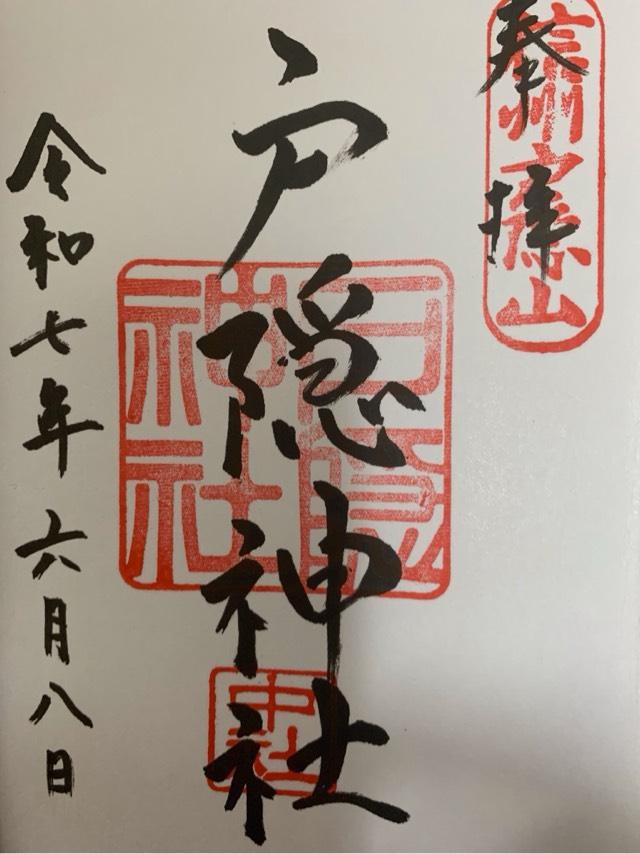 奉拝
信州戸隠山
戸隠神社
戸隠神社
中社
令和七年六月八日